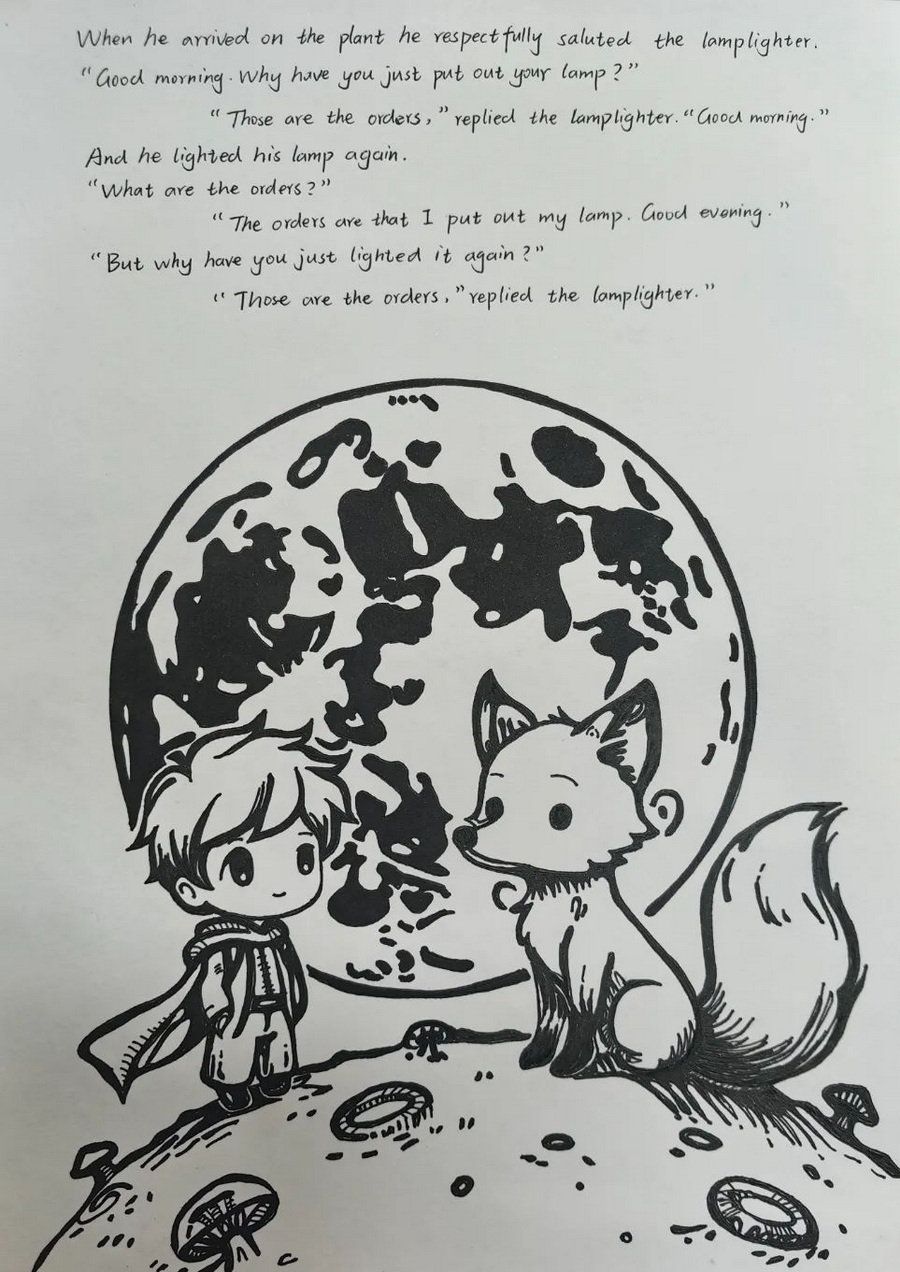 When he arrived on the plant he respectfully saluted the lamplighter.
“Good morning. Why have you just put out your lamp?”
“Those are the orders,” replied the lamplighter. “Good morning.”
And he lighted his lamp again.
“What are the orders?”
“The orders are that I put out my lamp. Good evening.”
“But why have you just lighted it again?”
“Those are the orders,” replied the lamplighter.”